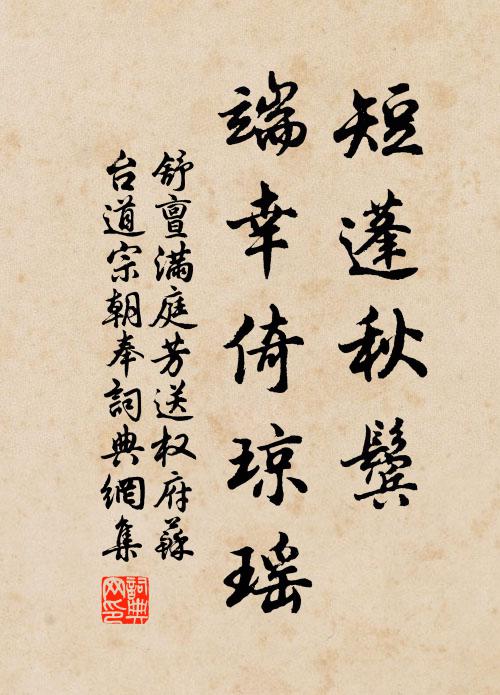 短蓬秋鬓
端幸倚琼瑶
舒亶满庭芳送权府蘇
台道宗朝奉詞典網集
詞典网印